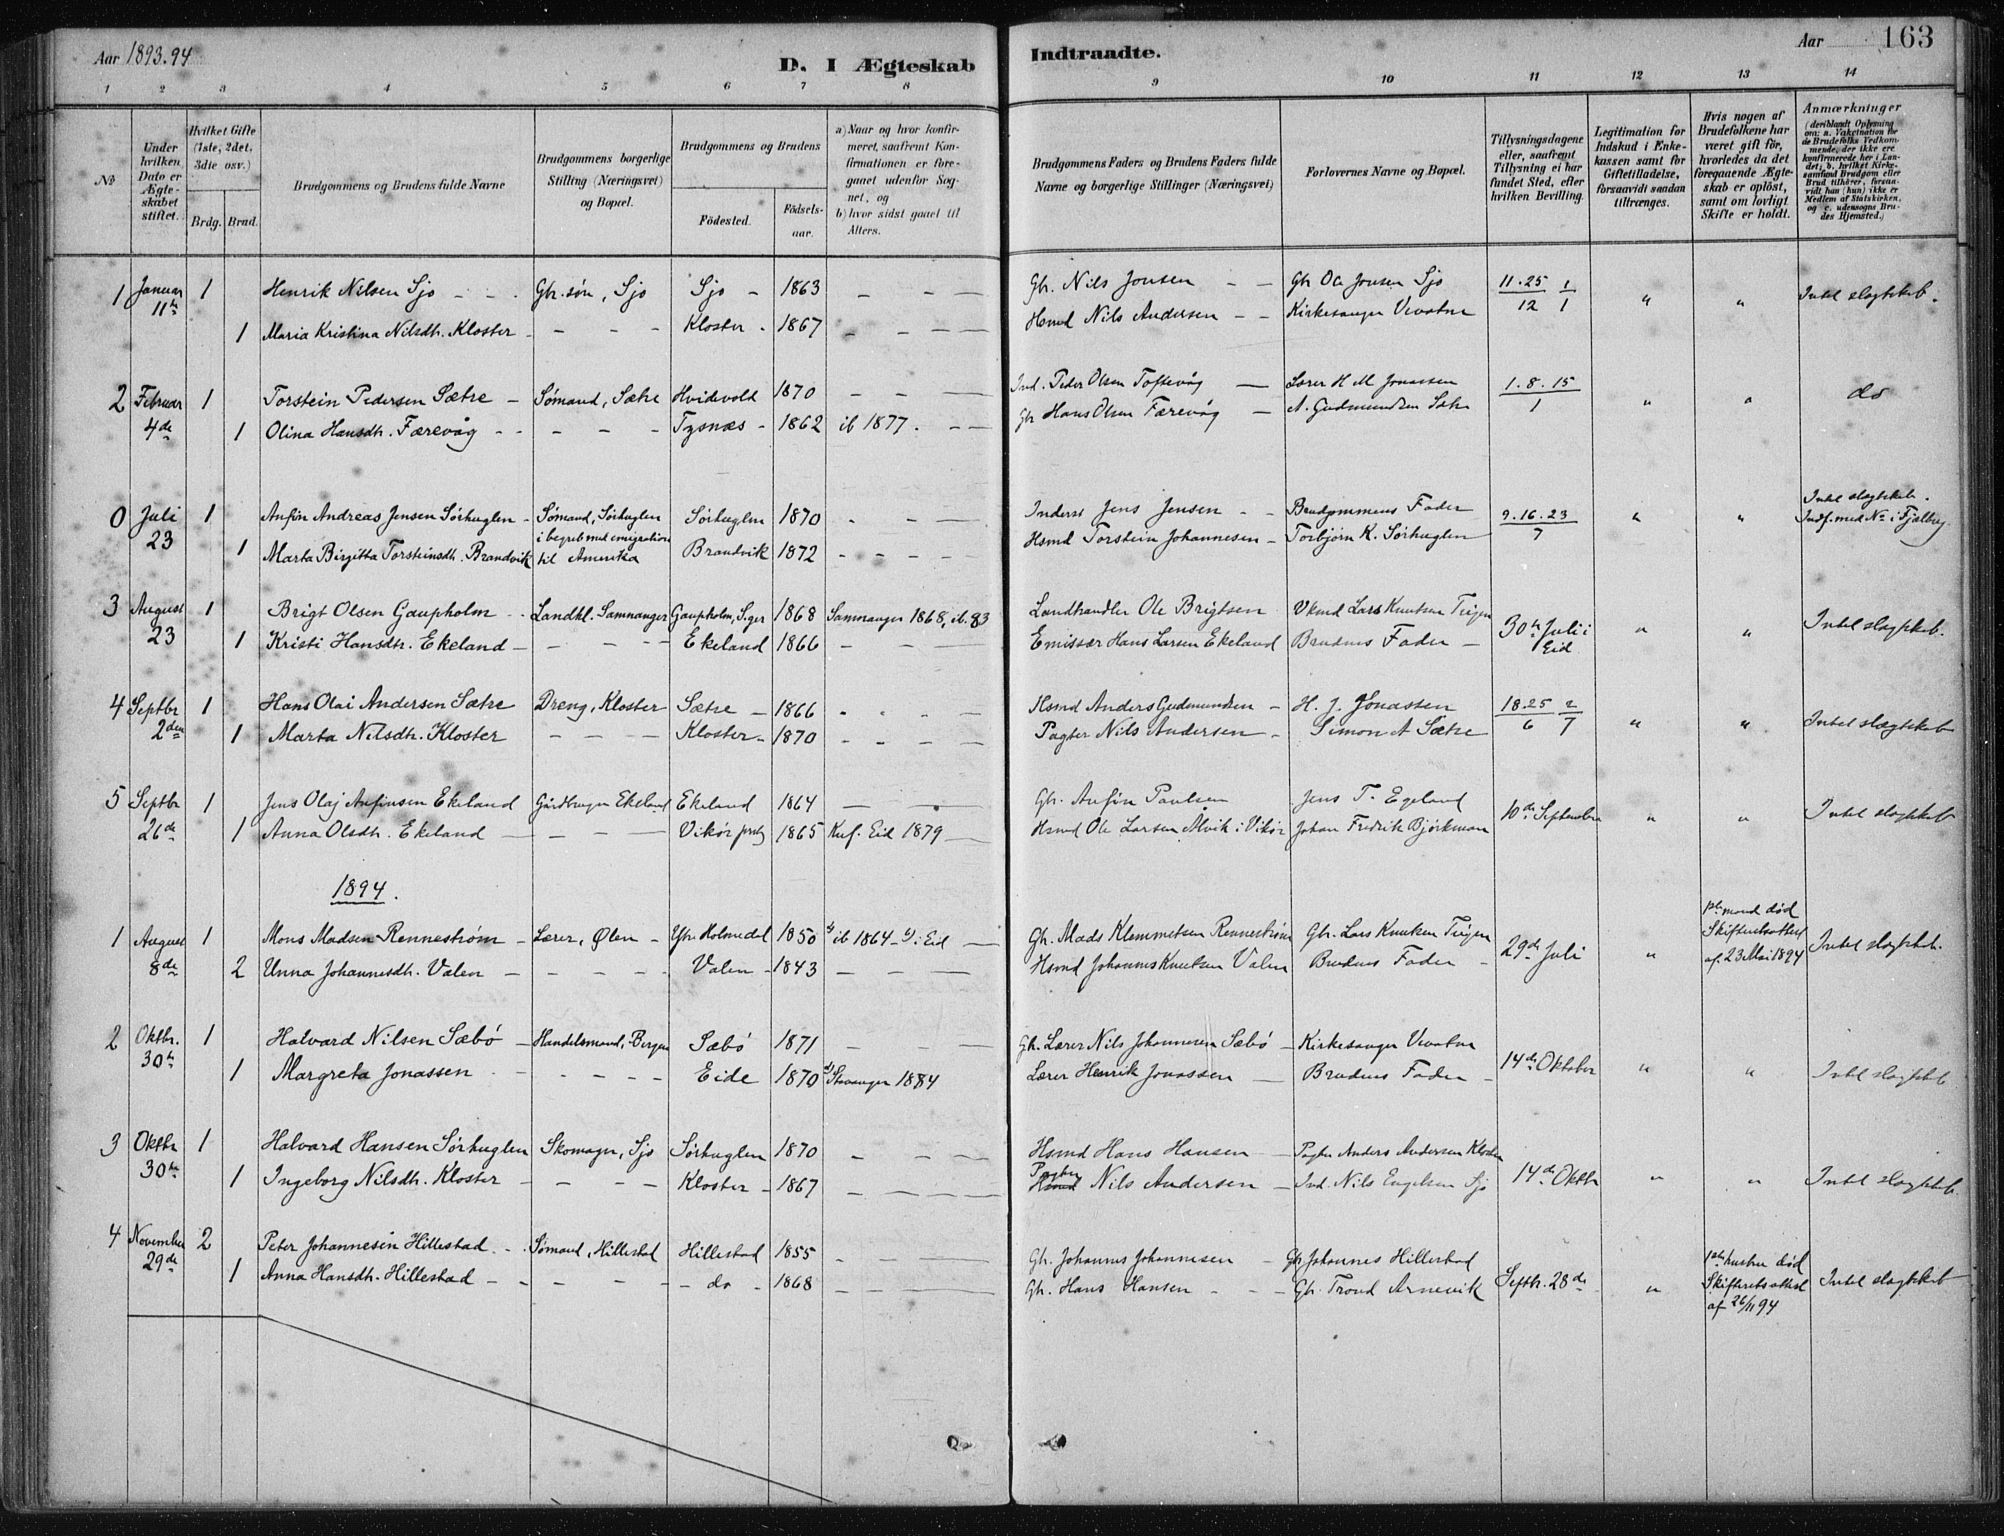 Aar 1893.94
D. I Ægteskab Indtraadte.
Aar 163
1 2 3 4 5 6 7 8 9 10 11 12 13 14
No
Under hvilken Dato er Ægteskabet stiftet.
Hvilket Gifte (1ste, 2det, 3die osv.)
Brdg. Brud.
Brudgommens og Brudens fulde Navne
Brudgommens borgerlige Stilling (Næringsvei) og Bopæl.
Brudgommens og Brudens
Födested.
Födsels-aar.
a) Naar og hvor konfirmeret, saafremt Konfirmationen er foregaaet udenfor Sognet, og
b) hvor sidst gaaet til Alters.
Brudgommens Faders og Brudens Faders fulde Navne og borgerlige Stillinger (Næringsvei)
Forlovernes Navne og Bopæl.
Tillysningsdagene eller, saafremt Tillysning ei har fundet Sted, efter hvilken Bevilling.
Legitimation for Indskud i Enkekassen samt for Giftetilladelse, forsaavidt saadan tiltrænges.
Hvis nogen af Brudefolkene har været gift för, hvorledes da det foregaaende Ægteskab er oplöst, samt om lovligt Skifte er holdt.
Anmærkninger (deriblandt Oplysning om: a. Vakcination for de Brudefolks Vedkommende, der ikke ere konfirmerede her i Landet; b. hvilket Kirkesamfund Brudgom eller Brud tilhörer, forsaavidt han (hun) ikke er Medlem af Statskirken, og c. udensogns Brudes Hjemsted.)
1 Januar 11te 1 Henrik Nilsen Sjo - - - Gbr.søn, Sjo Sjo - 1863 - - - Gbr. Nils Jonsen - - Gbr Ole Jonsen Sjo 11.25/12 1/1 " " Intet slægtskab.
1 Maria Kristina Nilsdtr. Kloster - - - - Kloster - 1867 - - - - Hsmd Nils Andersen - - Kirkesanger Vevatne
2 Februar 4de 1 Torstein Pedersen Sætre - Sømand, Sætre Hvidevold 1870 - - - Ind. Peder Olsen Toftevåg - Lærer H M Jonassen 1.8.15/1 " " do
1 Olina Hansdtr. Færevåg - - - - - Tysnæs - 1862 ib 1877. - - Gbr Hans Olsen Færevåg - A. Gudmundsen Sætre
0 Juli 23 1 Anfin Andreas Jensen Sørhuglen - Sømand, Sørhuglen Sørhuglen 1870 - - - Inderst Jens Jensen - - Brudgommens Fader 9.16.23/7 " " Intet slægtskab. Indf. med No i Fjælberg
i begreb med emigration
1 Marta Birgitta Torsteinsdtr. Brandvik til Amerika Brandvik 1872 - - - - Hsmd Torstein Johannesen - Torbjörn K. Sørhuglen
3 August 23 1 Brigt Olsen Gaupholm - - Landhl. Samnanger Gaupholm, S.ger 1868 Samnanger 1868, ib. 83 Landhandler Ole Brigtsen Vkmd Lars Knutsen Teigen 30te Juli i Eid " " Intet slægtskab.
1 Kristi Hansdtr. Ekeland - - - - - Ekeland 1866 - - - Emissær Hans Larsen Ekeland Brudens Fader -
4 Septbr 2den 1 Hans Olai Andersen Sætre Dreng, Kloster Sætre - 1866 - - - - Hsmd Anders Gudmundsen - H. J. Jonassen 18.25/6 2/7 " " Intet slægtskab
1 Marta Nilsdtr. Kloster - - - - Kloster - 1870 - - - - Pagter Nils Andersen - Simon A Sætre
5 Septbr 26de 1 Jens Olaj Anfinsen Ekeland Gårdbruger Ekeland Ekeland 1864 - - - Gbr. Anfin Paulsen Jens T. Egeland 10de September " " Intet slægtskab
1 Anna Olsdtr. Ekeland - - - - Vikör prstg 1865 Knf. Eid 1879 - Hsmd Ole Larsen Alvik i Vikör Johan Fredrik Björkman
1894.
1 August 8de 1 Mons Madsen Rennestrøm - Lærer, Ølen - Yh. Holmedal 1850 a) ib 1864 - b) i Eid - Gbr. Mads Klemmetsen Rennestrøm Gbr. Lars Knutsen Teigen 29de Juli " 1ste mand død Skifteretsattest af 23 Mai 1894 Intet slægtskab.
2 Unna Johannesdtr. Valen - - - - - Valen - 1843 - - - Hsmd Johannes Knutsen Valen Brudens Fader -
2 Oktbr. 30te 1 Halvard Nilsen Sæbø - Handelsmand, Bergen Sæbø 1871 - - - Gbr. Lærer Nils Johannesen Sæbø - Kirkesanger Vevatne 14de Oktober " " Intet slægtskab
1 Margreta Jonassen - - - - - Eide 1870 a) Stavanger 1884 Lærer Henrik Jonassen - Brudens Fader -
3 Oktbr 30te 1 Halvard Hansen Sørhuglen Skomager, Sjo Sørhuglen 1870 - - - - Hsmd Hans Hansen - Pagter Anders Andersen Kloster 14de Oktbr " " Intet slægtskab.
1 Ingeborg Nilsdtr. Kloster - - - - Kloster - 1867 - - - - Pagter Hsmd Nils Andersen - Ind. Nils Engelsen Sjo
4 November 29de 2 Peter Johannesen Hillestad - - Sømand, Hillestad Hillestad 1855 - - - - Gbr. Johannes Johannesen - Gbr Johannes Hillestad Septbr. 28de " 1ste hustru død Skifteretsattest af 26/11 94 Intet slægtskab
1 Anna Hansdtr. Hillestad - - - - - do - 1868 - - - - Gbr. Hans Hansen - - - Gbr. Trond Arnevik